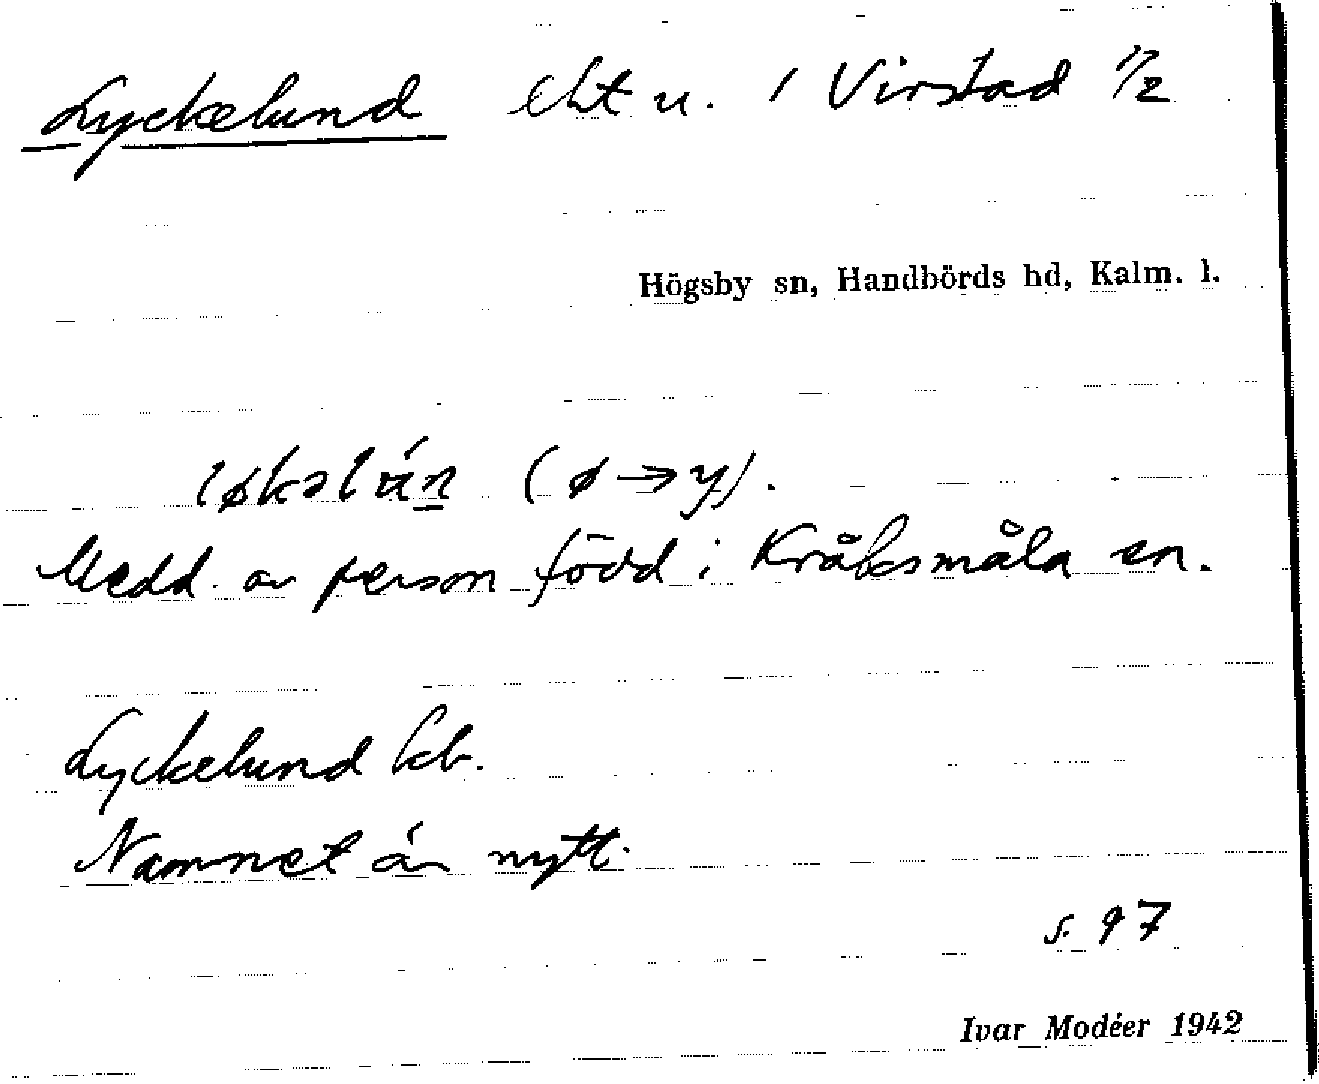 Lyckelund lht u. / Virstad 1/2
Högsby sn, Handbörds hd, Kalm. l.
løkəlún (ø→y).
Medd. av person född i Kråksmåla sn.
Lyckelund kb.
Namnet är nytt.
s. 97
Ivar Modéer 1942